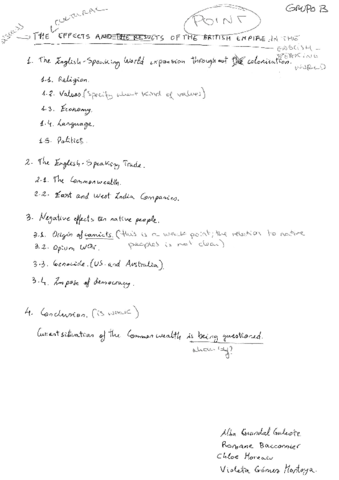 GRUPO B
CULTURAL
POINT
THE EFFECTS AND THE RESULTS OF THE BRITISH EMPIRE in THE
ENGLISH-
SPEAKING
1. The English-Speaking World expansion throughout the colonization.
1.1. Religion.
1.2. Values (Specify what kind of values)
1.3. Economy.
1.4. Language.
1.5. Politics.
2. The English-Speaking Trade.
2.1. The Commonwealth.
2.2. East and West India Companies.
3. Negative effects on native people.
3.1. Origin of (this is a weak point; the relation to native
peoples is not clear)
3.2. Opium War.
3.3. Genocide. (US. and Australia).
3.4. Impose of democracy.
4. Conclusion. (is weak)
Current situation of the Commonwealth is being questioned.
Alba
Roxane
Chloe
Violeta Gómez